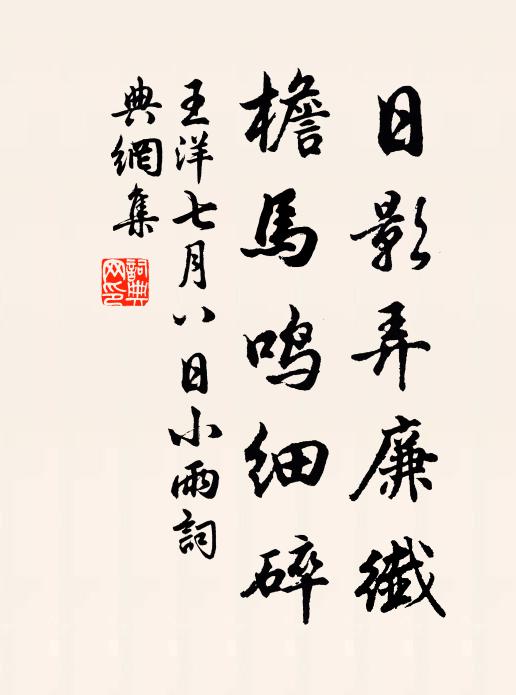 日影弄廉纖
檐馬鳴細碎
王洋七月八日小雨詞
典網集
詞典
网印